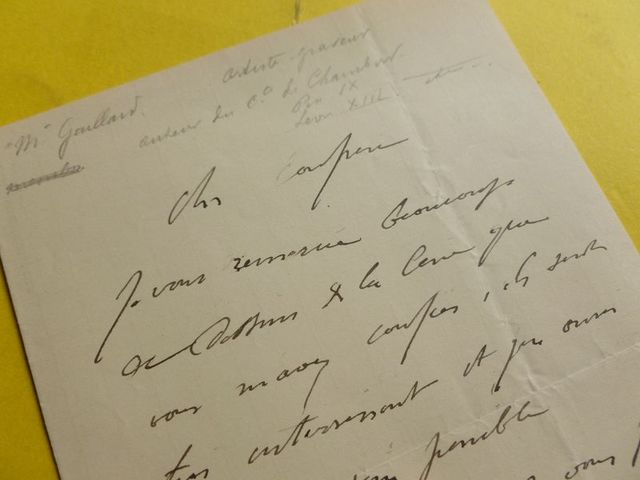 "Mr Gaillard.
artiste graveur
auteur du Cte de Chambord
Pie IX
Léon XIII
Cher Confrère
Je vous remercie beaucoup
de dessins & la
que
vous m'avez confiés, ils sont
très intéressant et que
possible
vous